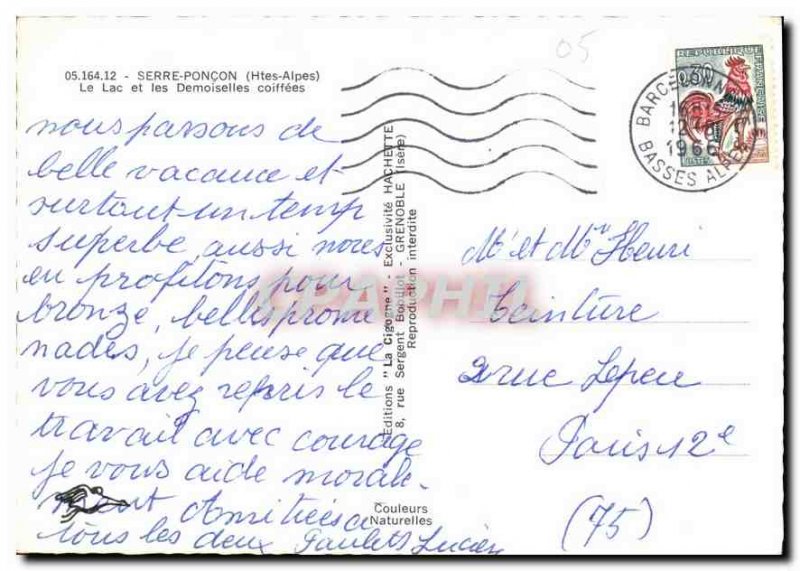 05.164.12 - SERRE-PONÇON (Htes-Alpes)
Le Lac et les Demoiselles coiffées
05
nous passons de
belle vacance et
surtout un temp
superbe, aussi nous
en profitons pour
bronze, belles prome
nades, je pense que
vous avez repris le
travail avec courage
je vous aide morale-
ment Amitiés a
tous les deux Paulet Lucien
Editions "La Cigogne" - Exclusivité HACHETTE
8, rue Sergent Bobillot - GRENOBLE (Isère)
Reproduction interdite
Couleurs
Naturelles
REPUBLIQUE FRANCAISE
0,30
BARCELONN
1966
BASSES ALPES
Mr et Mme Henri
Teinture
2 rue Lepeu
Paris 12e
(75)
CPAPHIL